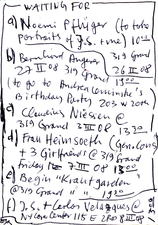 WAITING FOR
a) Noemi Pflüger (to take
portraits of J.S. tune) 10
b) Bernhard Angerer 319 Grand
27 II 08 319 Grand 26 II 08
(to go to Andrea Cominske's 1900
Birthday Party 203 W 20th
c) Claudius Niessen @
319 Grand 3 III 08 1330
d) Frau Heimsoeth (
+ 3 Girlfriends @ 319 Grand
friday 7 III 08 1330
e) Begin "Krautgarden
@ 319 Grand " " 1930
f) J.S. + Carlos Velazques @
NY Con Center 115 E 2nd 8 III 08